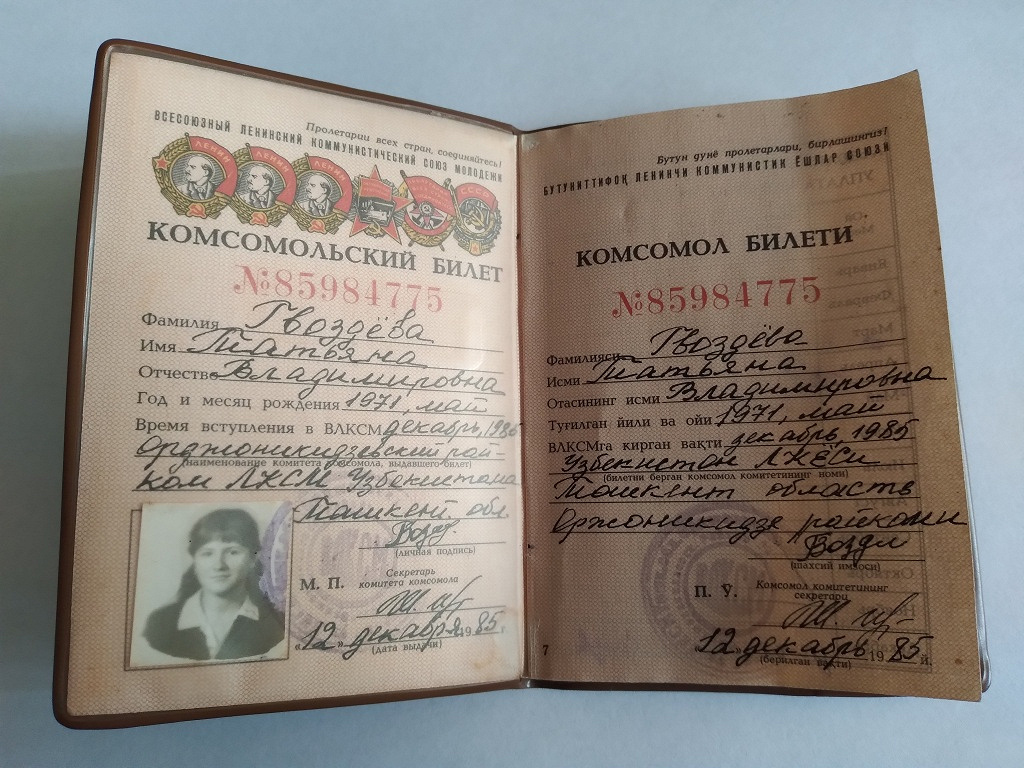 Пролетарии всех стран, соединяйтесь!
ВСЕСОЮЗНЫЙ ЛЕНИНСКИЙ КОММУНИСТИЧЕСКИЙ СОЮЗ МОЛОДЕЖИ
ЛЕНИН ЛЕНИН ЛЕНИН
КОМСОМОЛЬСКИЙ БИЛЕТ
№85984775
Фамилия Гвоздёва
Имя Татьяна
Отчество Владимировна
Год и месяц рождения 1971, май
Время вступления в ВЛКСМ декабрь, 1985
Орджоникидзевский рай-
(наименование комитета комсомола, выдавшего билет)
ком ЛКСМ Узбекистана
Ташкент. обл.
(личная подпись)
М. П.
Секретарь
комитета комсомола
«12» декабря 1985 г.
(дата выдачи)
Бутун дунё пролетарлари, бирлашингиз!
БУТУНИТТИФОҚ ЛЕНИНЧИ КОММУНИСТИК ЁШЛАР СОЮЗИ
КОМСОМОЛ БИЛЕТИ
№85984775
Фамилияси Гвоздёва
Исми Татьяна
Отасининг исми Владимировна
Туғилган йили ва ойи 1971, май
ВЛКСМга кирган вақти декабрь, 1985
Узбекистон ЛКЁСи
(билетни берган комсомол комитетининг номи)
Тошкент область
Оржоникидзе райкоми
(шахсий имзоси)
П. Ў.
Комсомол комитетининг
секретари
«12» декабрь 1985 й.
(берилган вақти)
7